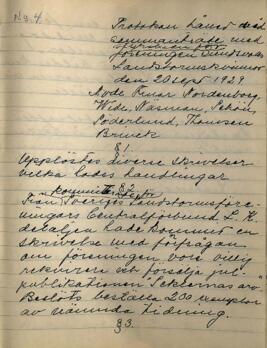 No. 4.
Protokoll hållet vid
sammanträde med
styrelsen för
föreningen Sundsvalls
Landstormskvinnor
den 20 sept 1929.
Nordenborg,
Wide, Näsman, Schön,
Söderlund, Thomsen
§1.
Upplästes diverse skrivelser
vilka lades handlingar
§2.
Från Sveriges Landstormsföre-
ningars Centralförbund S. K.
detaljen hade kommit en
skrivelse med förfrågan
om föreningen vore villig
rekvirera och försälja jul-
publikationen Seklernas arv".
Beslöts beställa 200 exemplar
av nämnda tidning.
§3.